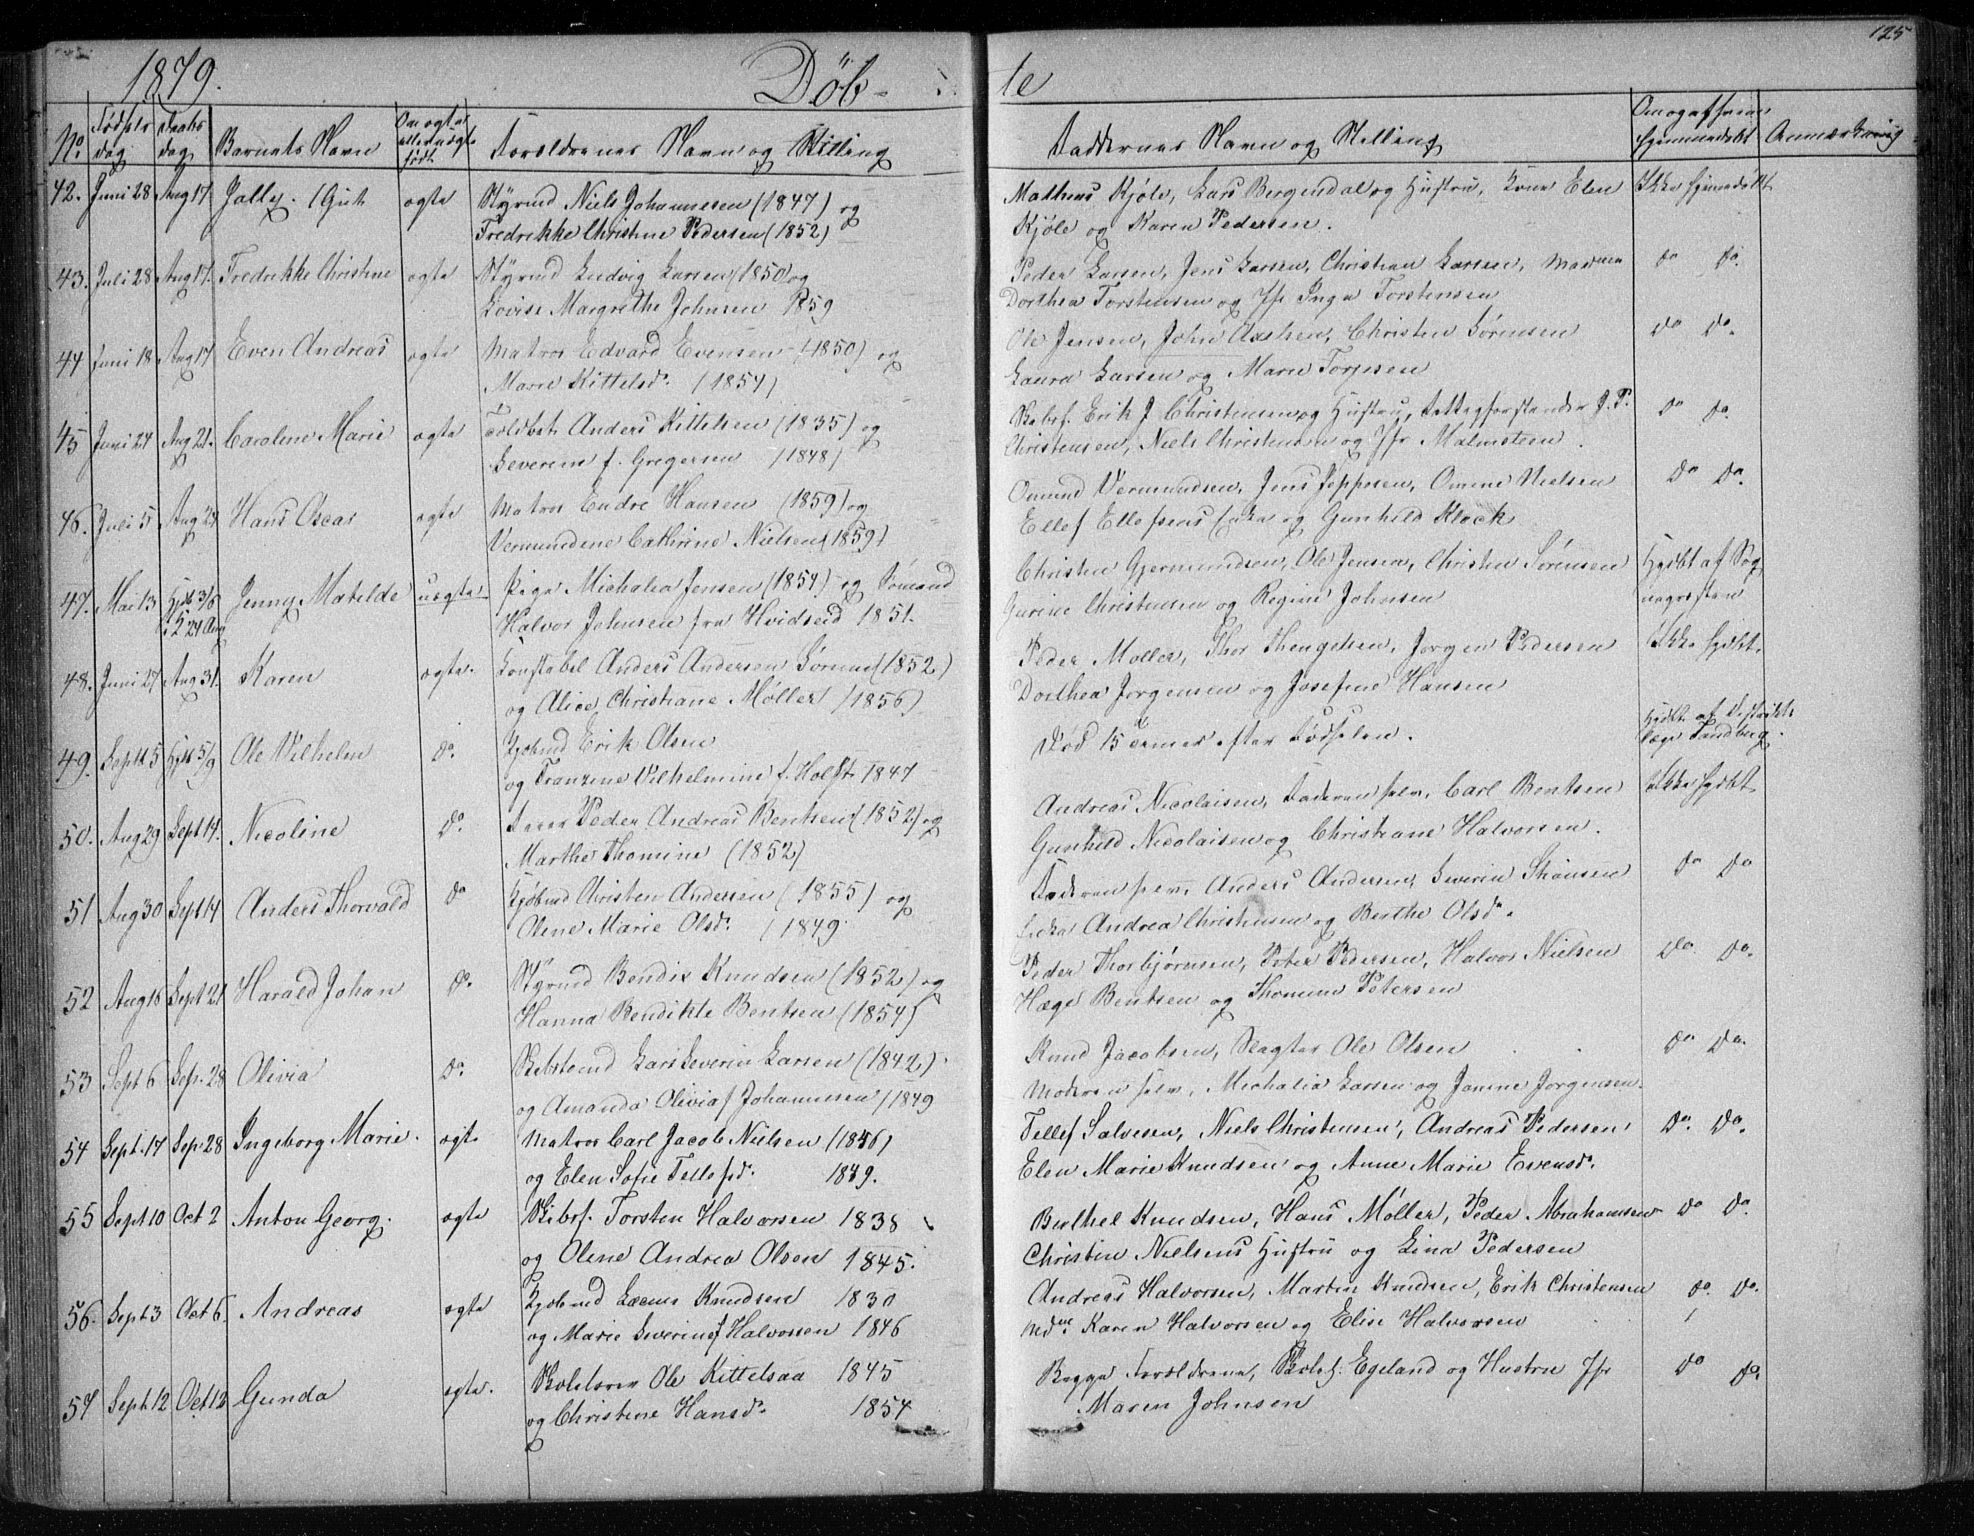 125
1879. Döb- te
No. Fødsels dag Daabs dag Barnets Navn Om ægte eller uægte født. Forældrenes Navn og Stilling Faddernes Navn og Stilling Anmærkning
42. Juni 28 Aug 17. Gut ægte Styrmd Niels Johannesen (1847) og Mathens Kjøle, Lars Bergendal og Hustru, Kone Elen Ikke
Fredrikke Christine Pedersen (1852) Kjöle og Karen Pedersen.
43. Juli 28 Aug 17. Fredrikke Christine ægte Styrmd Ludvig Larsen (1850) og Peder Larsen, Jens Larsen, Christian Larsen, do do.
Lovise Margrethe Johnsen 1859 Dorthea Torstensen og Jfr Inga Torstensen
44 Juni 18 Aug 17 Even Andreas ægte Matros Edvard Evensen (1850) og Ole Jensen, John Christen Sørensen do do.
Marie Kittelsd. (1854) Laura Larsen og Maren Torjesen
45 Juni 24 Aug 21. Caroline Marie ægte Toldbet. Anders Kittelsen (1835) og Skibsf. Erik J Christensen og Hustru, Fattigforstander J. P. do do.
Severine f. Gregersen (1848) Christensen, Niels Christensen og Jfr Malmsteen.
46. Juli 5 Aug 24 Hans Oscar ægte Matros Endre Hansen (1859) og Omund Vermundsen, Jens Jeppesen, Omine Nielsen do do.
Vermundine Cathrine Nielsen (1859) Ellef Ellefsens Enke og Gunhild Klock
47. Mai 13 Hjdt 3/6 Jenny Matilde uægte Pige Michalia Jensen (1854) og Sømand Christen Gjermundsen, Ole Jensen, Christen Sørensen Hjdbt af Sog
i K 24 Aug Halvor Johnsen fra Hvidseid 1851. Gurine Christensen og Regine Johnsen nepresten
48. Juni 27 Aug 31. Karen ægte. Konstabel Anders Andersen Lørum (1852) Peder Møller, Thor Thengelsen, Jørgen Pedersen Ikke hjdbt.
og Alice Christiane Møller (1856) Dorthea Jørgensen og Josefine Hansen
49. Sept 5 Hjdt 5/9 Ole Vilhelm do. Gjøbmd Erik Olsen Død 15 timer efter Fødselen. Hjdbt af Distrikts
og Franzine Vilhelmine f. Holst 1847 læge Sandberg.
50. Aug 29 Sept 14. Nicoline do. Peder Andreas Bentsen (1852) og Andreas Nicolaisen, Faderen selv, Carl Bentsen Ikke hjdbt
Marthe Thomine (1852) Gunhild Nicolaisen og Christiane Halvorsen.
51 Aug 30 Sept 14 Anders Thorvald do Christen Andersen (1855) og Faderen selv, Anders Andersen, Severin do do
Olene Marie Olsd. (1849. Enke Andrea Christensen og Berthe Olsd.
52 Aug 16 Sept 21 Harald Johan do. Styrmd Bendix Knudsen (1852) og Peder Thorbjörnsen, Peter Pedersen, Halvor Nielsen do do.
Hanna Bendikte Bentsen (1854) Hæge Bentsen og Thomine Petersen
53 Sept 6 Sep. 28 Olivia do. Lars Severin Larsen (1842) Knud Jacobsen, Slagter Ole Olsen do do.
og Amanda Olivia f Johannesen (1849 Moderen selv, Michalia Larsen og Janine Jørgensen.
54 Sept. 17 Sep. 28 Ingeborg Marie. ægte Matros Carl Jacob Nielsen (1846) Tellef Salvesen, Niels Christensen, Andreas Pedersen, do. do.
og Elen Sofie Tellefsd. 1849. Elen Marie Knudsen og Anne Marie Evensd.
55 Sept 10 Oct 2 Anton Georg. ægte Skibsf. Torsten Halvorsen 1838 Berthel Knudsen, Hans Møller, Peder Abrahamsen do do.
og Olene Andrea Olsen 1845. Christen Nielsens Hustru og Lina Pedersen
56. Sept 3 Oct 6. Andreas ægte Knudsen 1830 Andreas Halvorsen, Martin Knudsen, Erik Christensen do. do.
og Marie Severine f Halvorsen 1846 Karen Halvorsen og Elise Halvorsen
57 Sept 12 Oct 12 Gunda ægte. Skolelærer Ole Kittelsaa 1845 Begge Forældrene, Skolel. Egeland og Hustru Jfr do do.
og Christine Hansd. 1854 Maren Johnsen